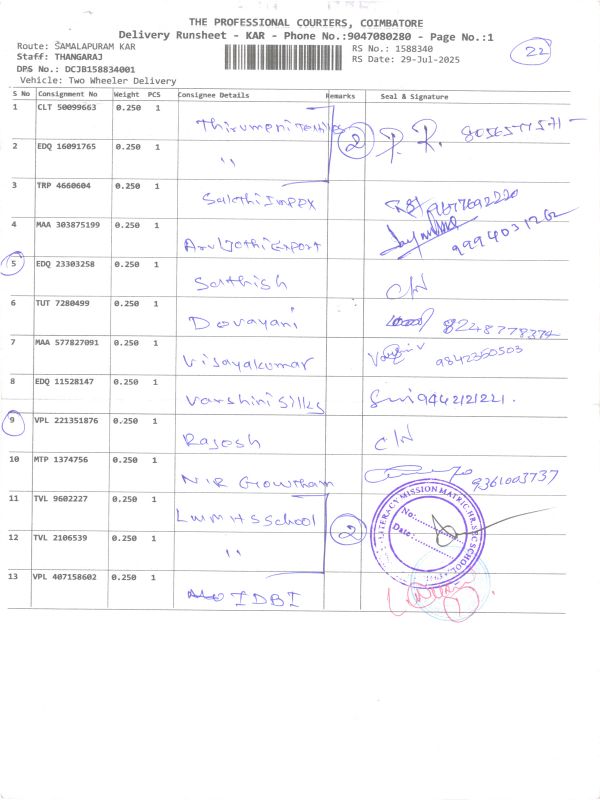 THE PROFESSIONAL COURIERS, COIMBATORE
Delivery Runsheet - KAR - Phone No.:9047080280 - Page No.:1
Route: SAMALAPURAM KAR RS No.: 1588340 22
Staff: THANGARAJ RS Date: 29-Jul-2025
DPS No.: DCJB158834001
Vehicle: Two Wheeler Delivery
S No Consignment No Weight PCS Consignee Details Remarks Seal & Signature
1 CLT 50099663 0.250 1
2 P. R. 8056577571
2 EDQ 16091765 0.250 1
"
3 TRP 4660604 0.250 1
Sakthi Impex
4 MAA 303875199 0.250 1
Arul Jothi Export 9994031262
5 EDQ 23303258 0.250 1
Sathish C/N
6 TUT 7280499 0.250 1
Dovayani 8248778374
7 MAA 577827091 0.250 1
Vijayakumar 9842350503
8 EDQ 11528147 0.250 1
Varshini Silks 9442121221.
9 VPL 221351876 0.250 1
Rajesh C/N
10 MTP 1374756 0.250 1
N.R Gowtham 9361003737
11 TVL 9602227 0.250 1
LMMHSSchool 2
LITERACY MISSION MATRIC.HR.SEC SCHOOL
No:
Date:
12 TVL 2106539 0.250 1
"
13 VPL 407158602 0.250 1
IDBI